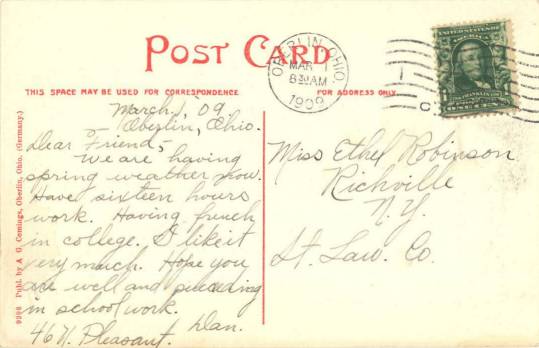 POST CARD
THIS SPACE MAY BE USED FOR CORRESPONDENCE
FOR ADDRESS ONLY.
OBERLIN, OHIO.
MAR 1
8-30 AM
1909
March 1, 09.
Oberlin, Ohio.
Dear Friend,
We are having
spring weather now.
Have sixteen hours
work. Having french
in college. I like it
very much. Hope you
are well and succeeding
in school work.
Dan.
46 N. Pleasant.
Miss Ethel Robinson
Richville
N.Y.
St. Law. Co.
9398 Publ. by A. G. Comings, Oberlin, Ohio. (Germany.)